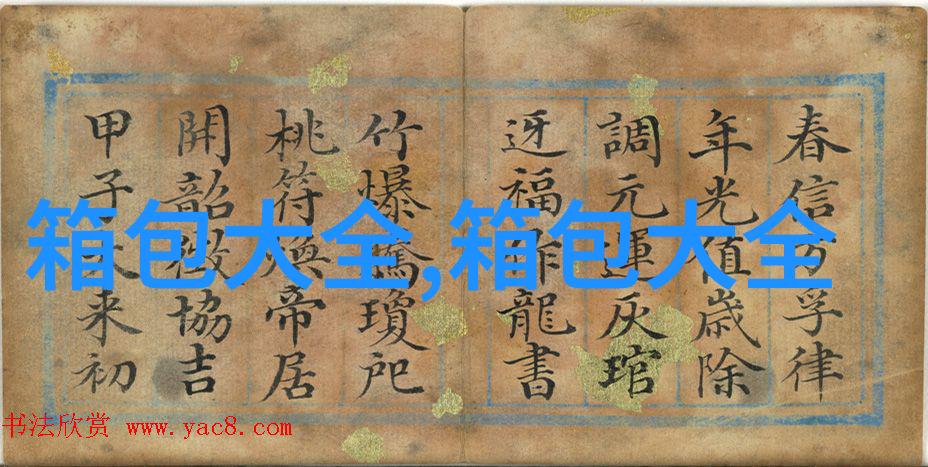 春信孚律
年光值歲除
調元運灰琯
迓福龍書
竹爆瓊
桃符煥帝居
開韶徵協吉
甲子来初
箱包大全,箱包大全
书法欣赏 www.yac8.com